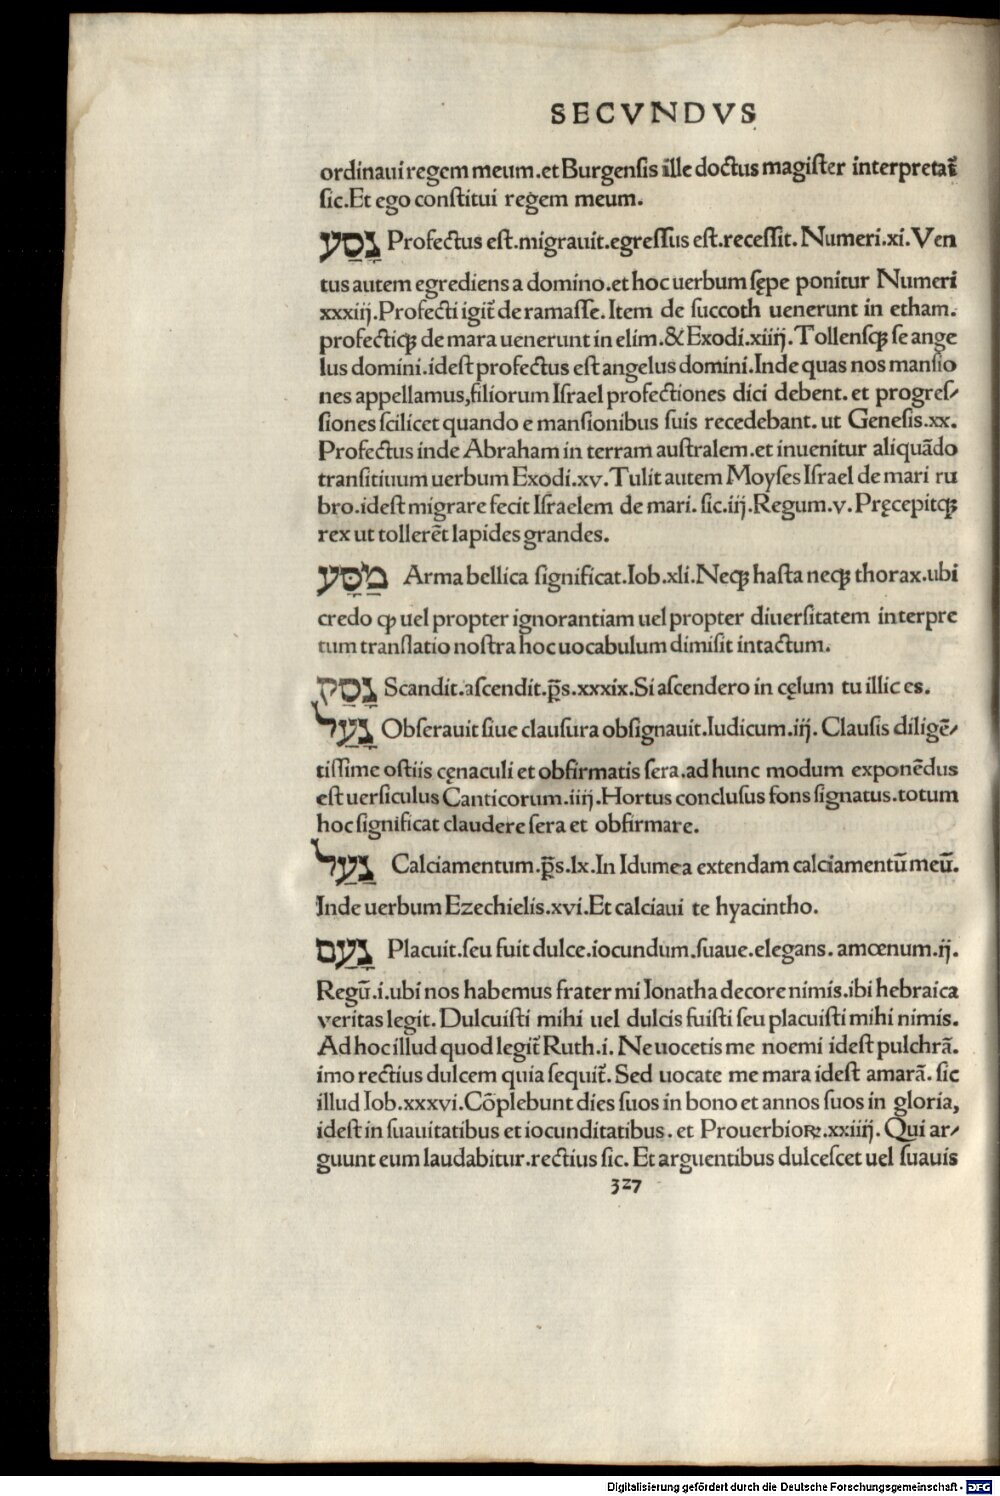 SECVNDVS
ordinaui regem meum.et Burgensis ille doctus magister interpretat᷑
sic.Et ego constitui regem meum.
נָסַע Profectus est.migrauit.egressus est.recessit. Numeri.xi. Ven
tus autem egrediens a domino.et hoc uerbum sępe ponitur Numeri
xxxiij.Profecti igit᷑ de ramasse. Item de succoth uenerunt in etham.
profectiqꝫ de mara uenerunt in elim.& Exodi.xiiij. Tollensqꝫ se ange
lus domini.idest profectus est angelus domini.Inde quas nos mansio
nes appellamus,filiorum Israel profectiones dici debent. et progres/
siones scilicet quando e mansionibus suis recedebant. ut Genesis.xx.
Profectus inde Abraham in terram australem.et inuenitur aliquãdo
transitiuum uerbum Exodi.xv. Tulit autem Moyses Israel de mari ru
bro.idest migrare fecit Israelem de mari. sic.iij.Regum.v. Pręcepitqꝫ
rex ut tollerẽt lapides grandes.
מַסָּע Arma bellica significat.Iob.xli.Neqꝫ hasta neqꝫ thorax.ubi
credo ꝙ uel propter ignorantiam uel propter diuersitatem interpre
tum translatio nostra hoc uocabulum dimisit intactum.
נָסַק Scandit.ascendit.p̃s.xxxix.Si ascendero in cęlum tu illic es.
נָעַל Obserauit siue clausura obsignauit.Iudicum.iij. Clausis diligẽ/
tissime ostiis cęnaculi et obfirmatis sera.ad hunc modum exponẽdus
est uersiculus Canticorum.iiij.Hortus conclusus fons signatus.totum
hoc significat claudere sera et obfirmare.
נַעַל Calciamentum.p̃s.lx.In Idumea extendam calciamentũ meũ.
Inde uerbum Ezechielis.xvi.Et calciaui te hyacintho.
נָעַם Placuit.seu fuit dulce.iocundum.suaue.elegans. amœnum.ij.
Regũ.i.ubi nos habemus frater mi Ionatha decore nimis.ibi hebraica
veritas legit. Dulcuisti mihi uel dulcis fuisti seu placuisti mihi nimis.
Ad hoc illud quod legit᷑ Ruth.i. Ne uocetis me noemi idest pulchrã.
imo rectius dulcem quia sequit᷑. Sed uocate me mara idest amarã. sic
illud Iob.xxxvi.Cõplebunt dies suos in bono et annos suos in gloria,
idest in suauitatibus et iocunditatibus. et Prouerbioꝝ.xxiiij. Qui ar/
guunt eum laudabitur.rectius sic. Et arguentibus dulcescet uel suauis
327
Digitalisierung gefördert durch die Deutsche Forschungsgemeinschaft - DFG